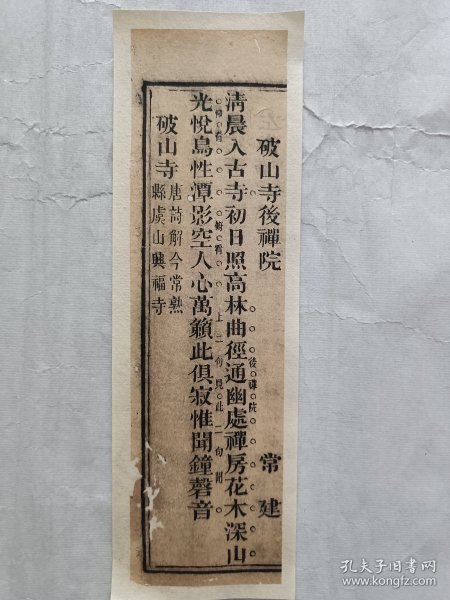 破山寺後禪院 常建
清晨入古寺初日照高林曲徑通幽處禪房花木深山
後禪院
光悅鳥性潭影空人心萬籟此俱寂惟聞鐘磬音
上二句見此二句聞
破山寺唐詩解今常熟
縣虞山興福寺
孔夫子旧书网
www.kongfz.com